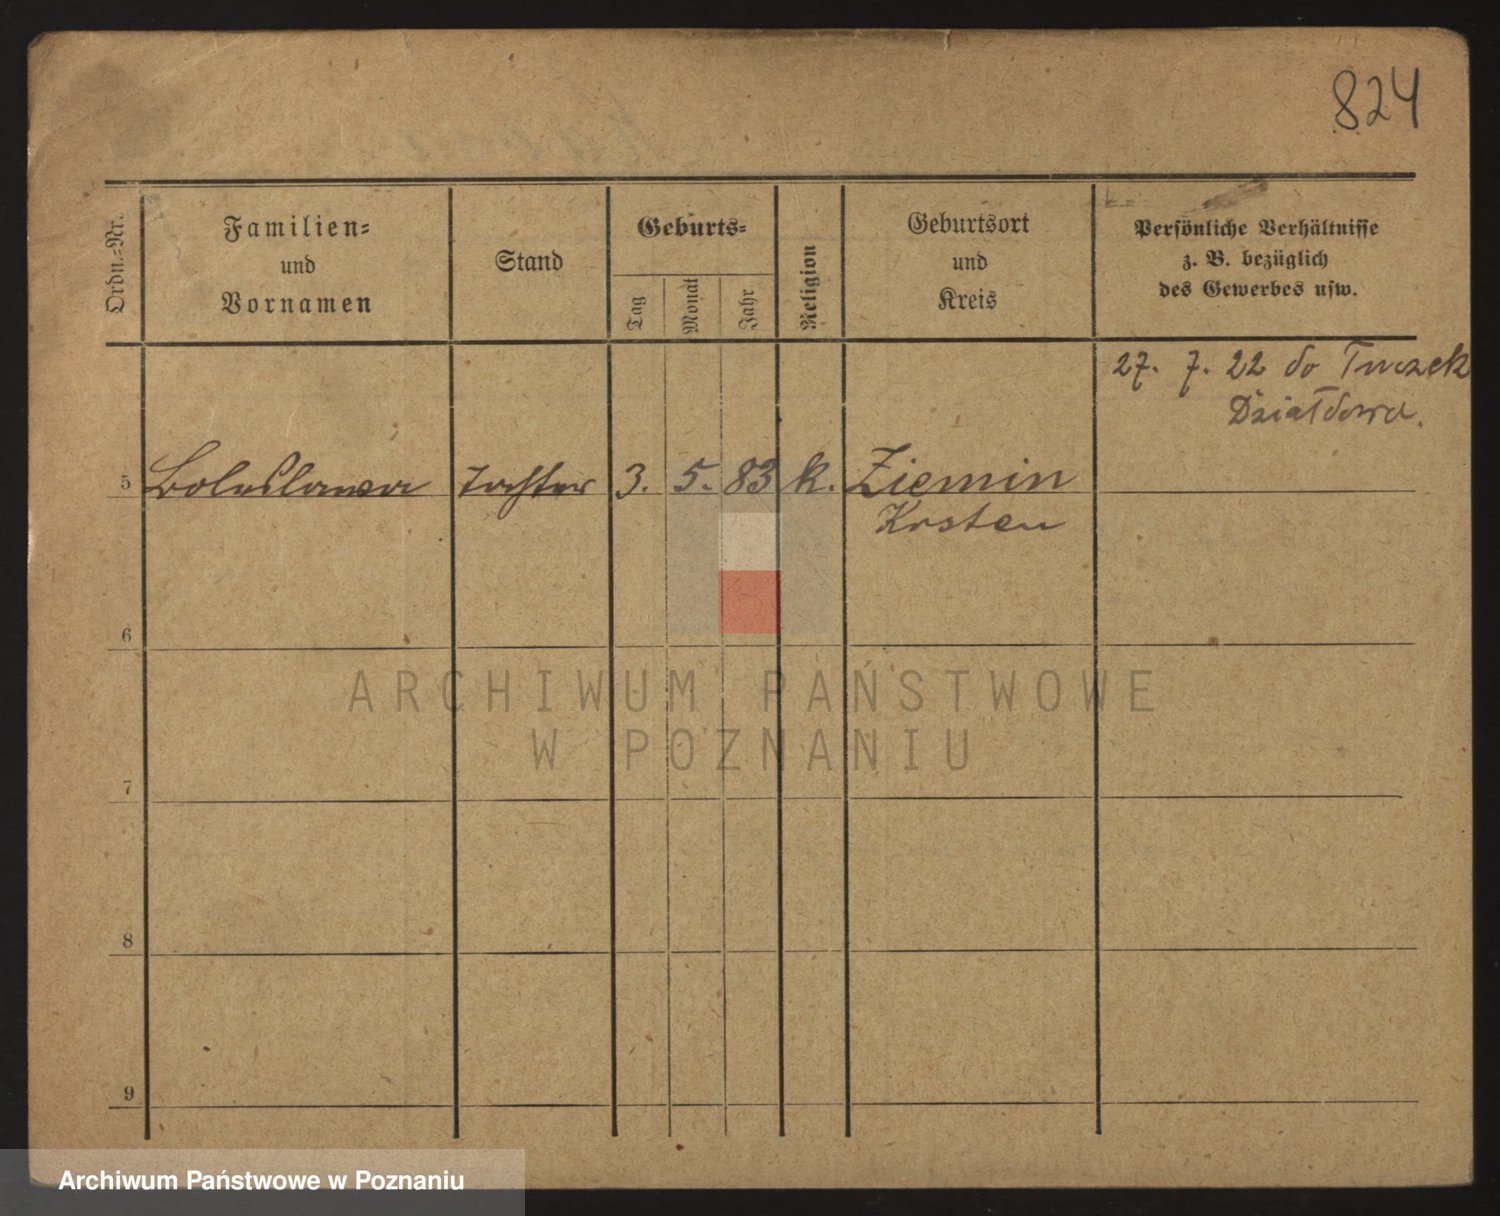 824
Ordn.-Nr.
Familien-
und
Vornamen
Stand
Geburts-
Tag
Monat
Jahr
Religion
Geburtsort
und
Kreis
Persönliche Verhältnisse
z. B. bezüglich
des Gewerbes usw.
27. 7. 22 do Turczek
Działdowa.
5 Boleslawa Tochter 3. 5. 83 k. Ziemin
Kosten
6
7
8
9
ARCHIWUM PAŃSTWOWE
W POZNANIU
Archiwum Państwowe w Poznaniu